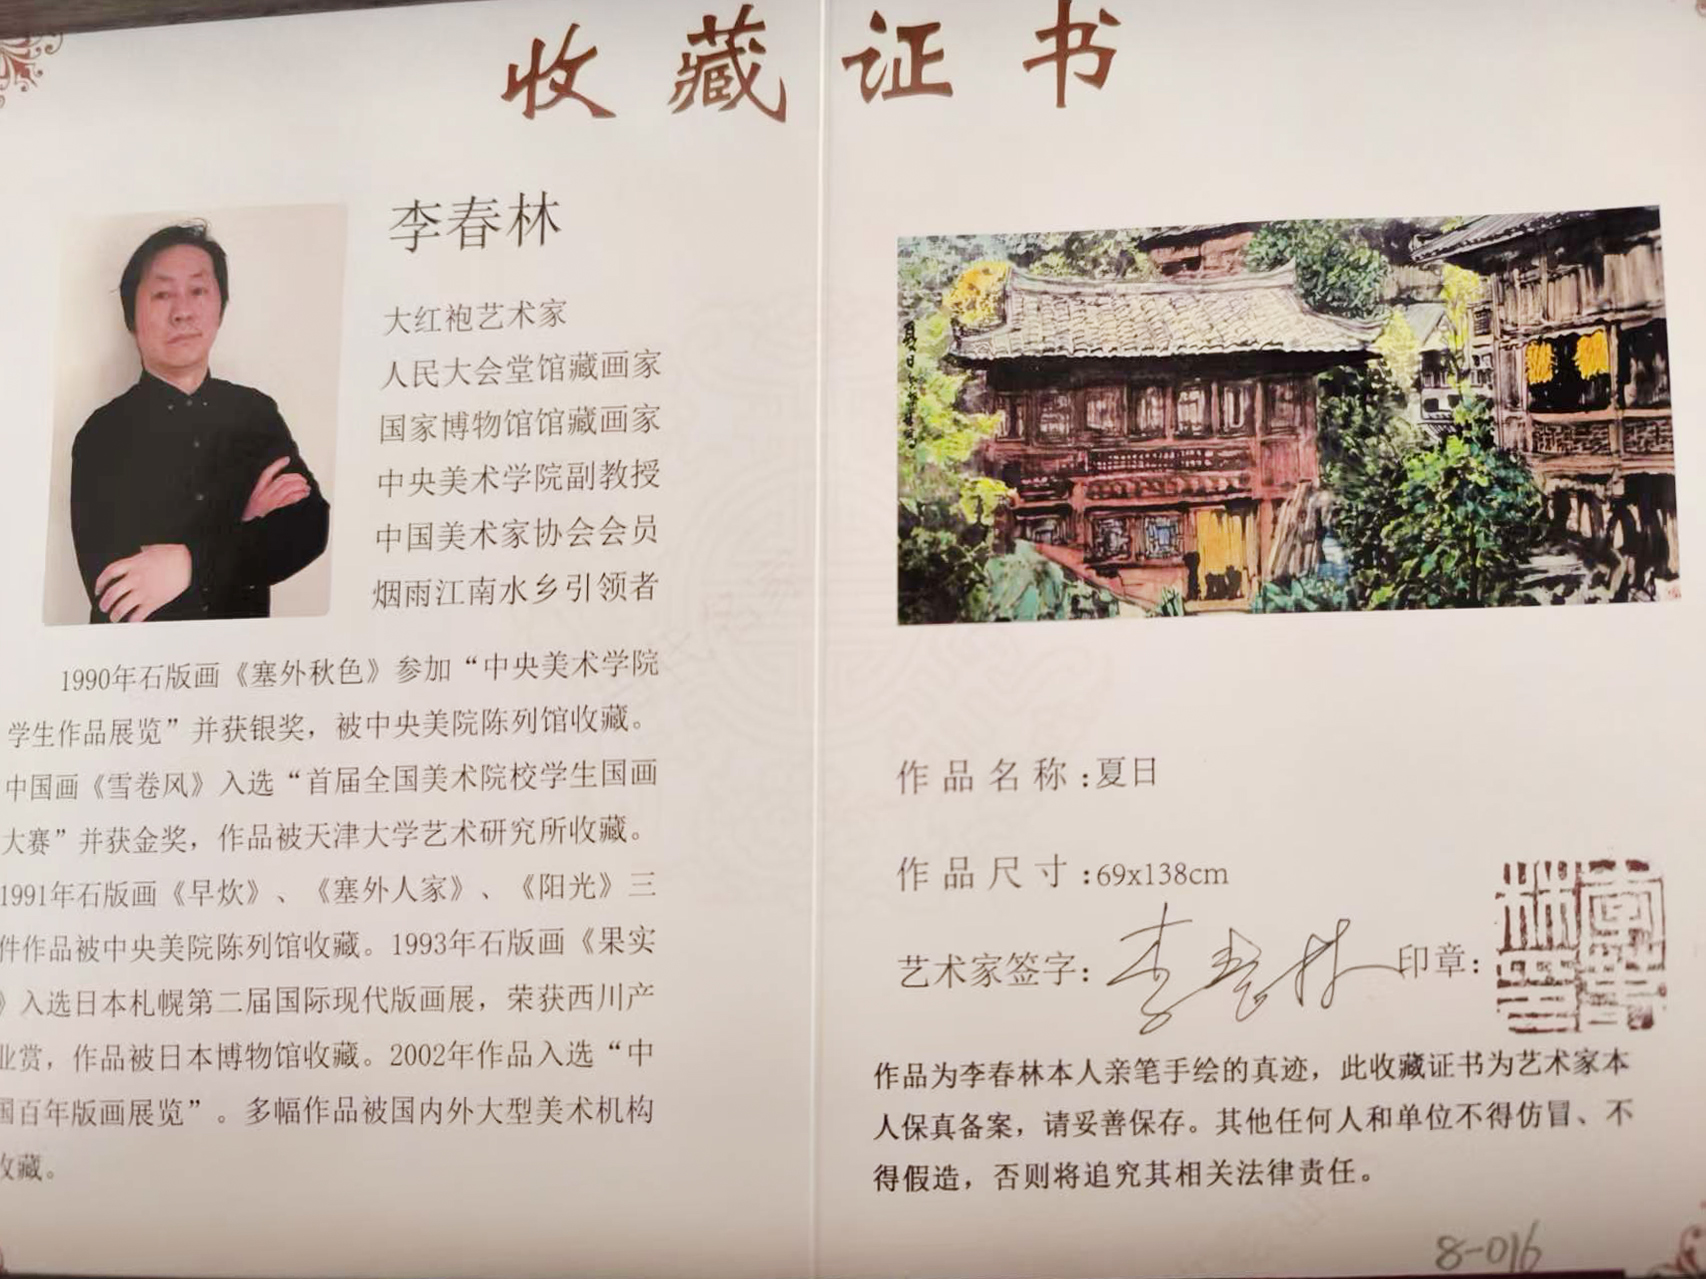 收藏证书
李春林
大红袍艺术家
人民大会堂馆藏画家
国家博物馆馆藏画家
中央美术学院副教授
中国美术家协会会员
烟雨江南水乡引领者
1990年石版画《塞外秋色》参加“中央美术学院
学生作品展览”并获银奖，被中央美院陈列馆收藏。
中国画《雪卷风》入选“首届全国美术院校学生国画
大赛”并获金奖，作品被天津大学艺术研究所收藏。
1991年石版画《早炊》、《塞外人家》、《阳光》三
件作品被中央美院陈列馆收藏。1993年石版画《果实
》入选日本札幌第二届国际现代版画展，荣获西川产
业赏，作品被日本博物馆收藏。2002年作品入选“中
国百年版画展览”。多幅作品被国内外大型美术机构
收藏。
夏日
作品名称:夏日
作品尺寸:69x138cm
艺术家签字: 李春林 印章:
作品为李春林本人亲笔手绘的真迹，此收藏证书为艺术家本
人保真备案，请妥善保存。其他任何人和单位不得仿冒、不
得假造，否则将追究其相关法律责任。
8-016